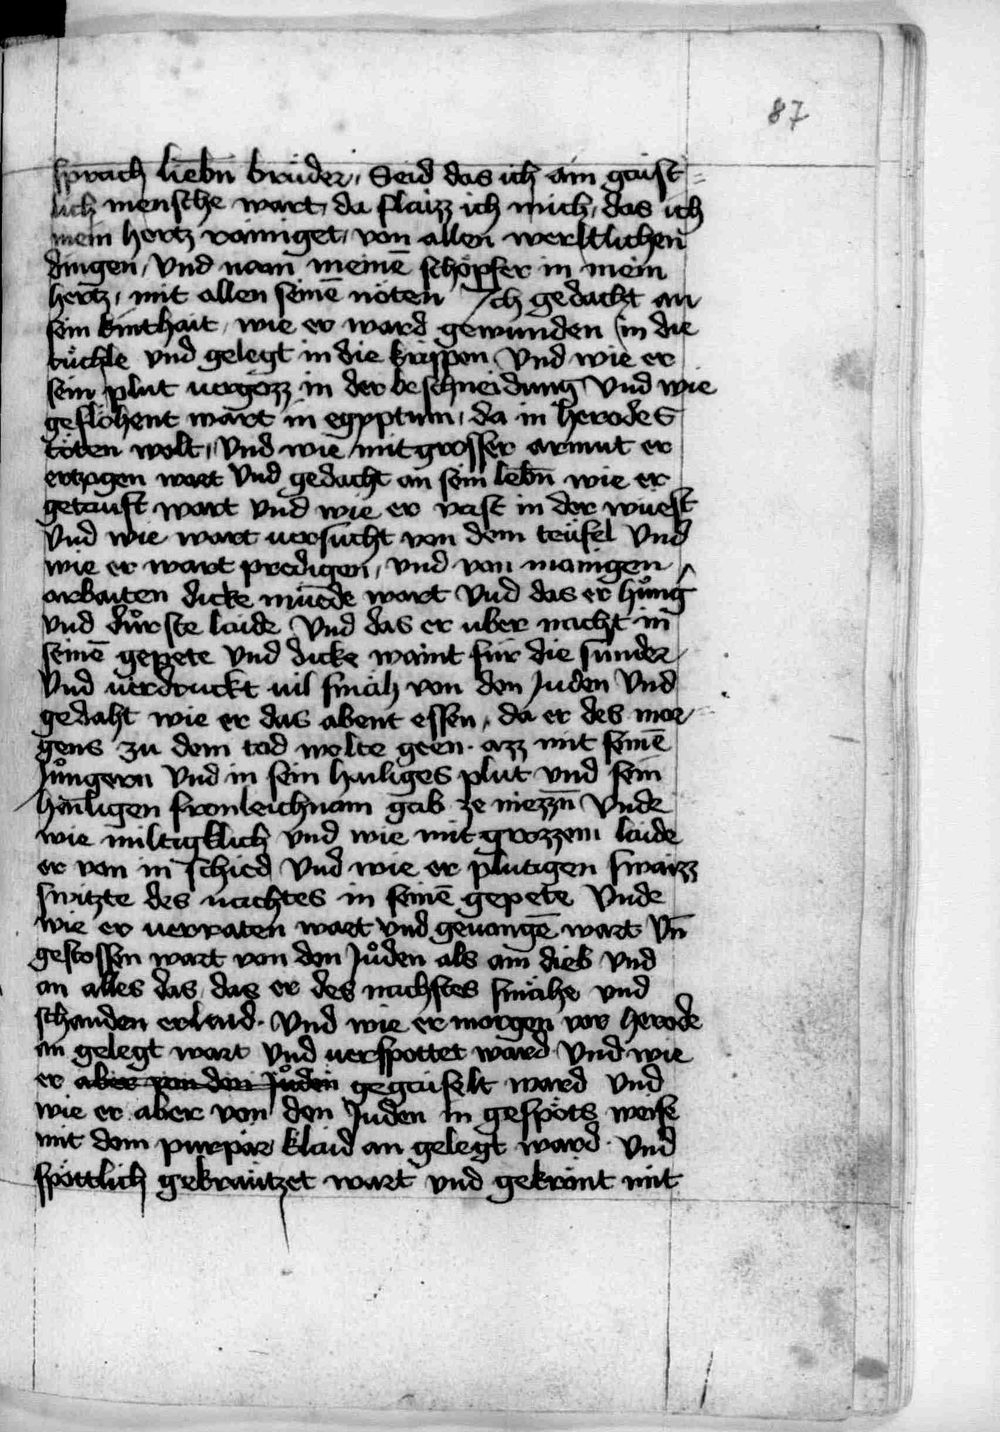 87
sprach liebn̄ brüder, Seid das ich ain gaist-
lich mensche wart, da flaizz ich mich, das ich
mein hertz rainiget, von allen werltlichen
dingen, Vnd nam meinē schöpfer in mein
hertz, mit allen seinē nöten Ich gedacht an
sein kinthait, wie er ward gewunden in die
tüchle vnd gelegt in die krippen Vnd wie er
sein plut uergozz in der beschneidung Vnd wie
geflöhent wart in egyptum, da in herodes
töten wolt, Vnd wie mit grosser armut er
ertzogen wart Vnd gedacht an sein lebn̄ wie er
getauft wart Vnd wie er vast in der wüest
Vnd wie wart uersucht von dem teufel Vnd
wie er wart predigen, vnd von manigen
arbaiten dicke müede wart Vnd das er hůng
vnd důrste laide Vnd das er uber nacht in
seinē gepete Vnd dicke waint für die sunder
Vnd uerdruckt uil smäh von den Juden Vnd
gedaht wie er das abent essen, da er des mor-
gens zu dem tod wolte geen. azz mit seinē
Jůngern Vnd in sein hailiges plut vnd sein
hailigen fronleichnam gab ze niezzn̄ Vnde
wie miltigklich vnd wie mit grozzem laide
er von in schied Vnd wie er plutigen swaizz
switzte des nachtes in seinē gepete Vnde
wie er uerraten wart vnd geuangē wart Vn̄
gestossen wart von den Jůden als ain dieb vnd
an alles das, das er des nachstes smähe vnd
schanden erlaid. Vnd wie er morgen vor herode
an gelegt wart Vnd uerspottet ward Vnd wie
er aber von den Jůden gegaiselt ward Vnd
wie er aber von den Juden in gespöts weise
mit dem purpur klaid an gelegt ward. Vnd
spöttlich gekräutzet wart vnd gekrönt mit